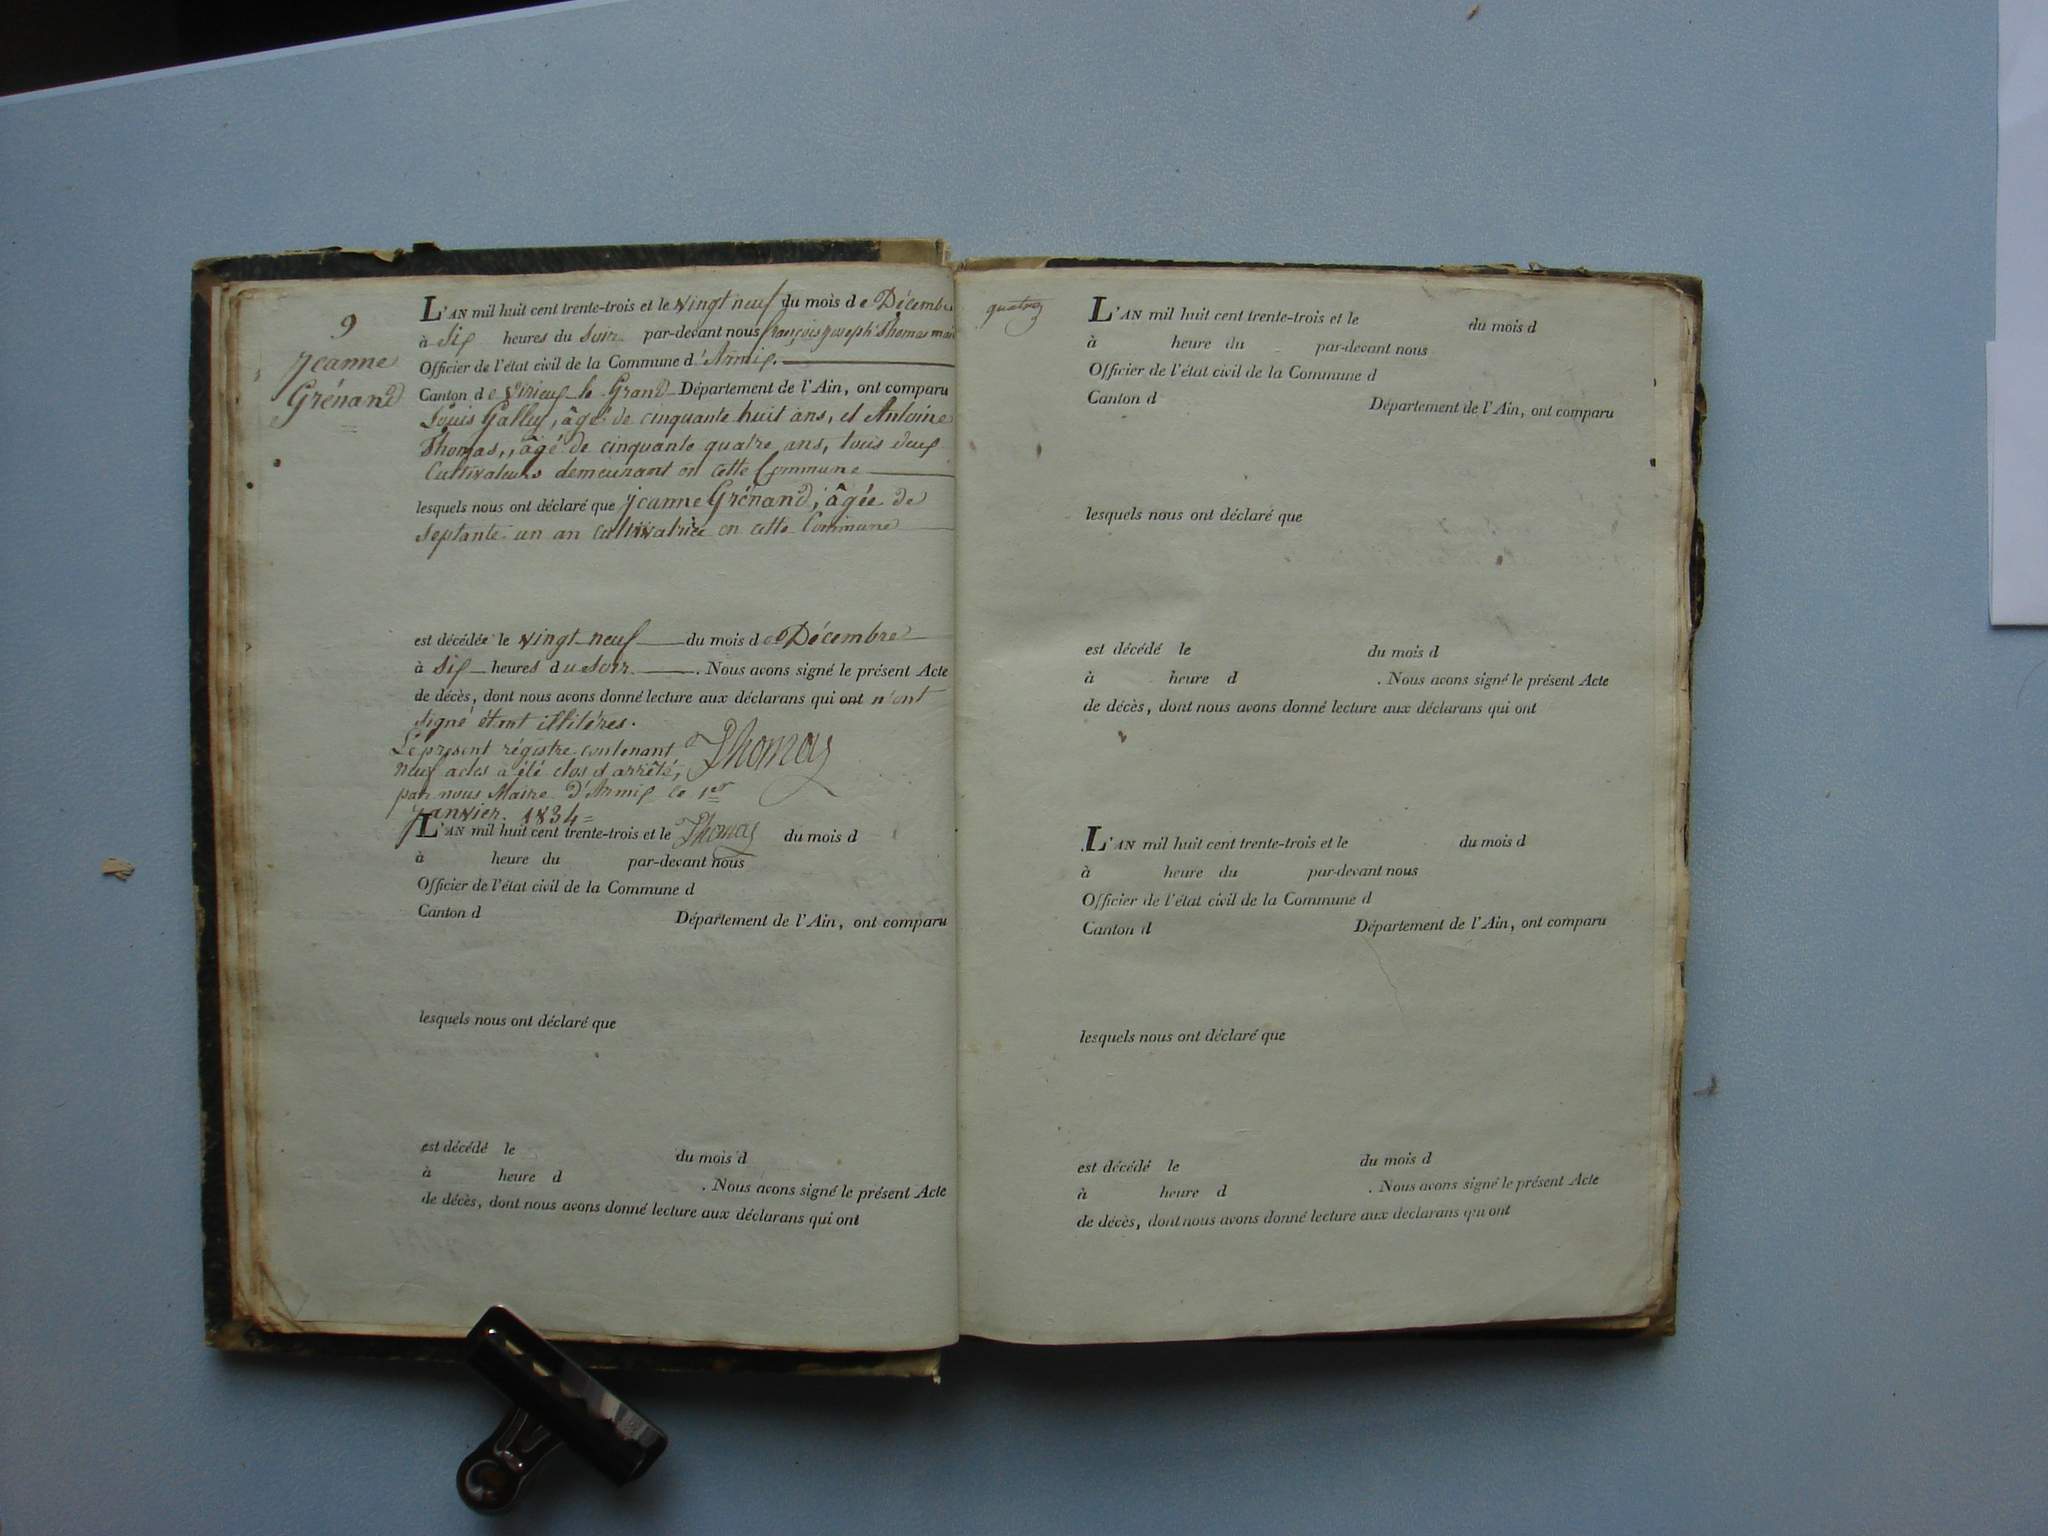 9
Jeanne
Grénand
L'AN mil huit cent trente-trois et le vingt neuf du mois de Décembre
à Six heures du Soir par-devant nous françois joseph Thomas maire
Officier de l'état civil de la Commune d'Armix.
Canton de Virieux le Grand Département de l'Ain, ont comparu
Louis Galley, âgé de cinquante huit ans, et Antoine
Thomas, âgé de cinquante quatre ans, tous deux
Cultivateurs demeurant en cette Commune
lesquels nous ont déclaré que jeanne Grénand, âgée de
Septante un an cultivatrice en cette Commune
est décédée le vingt neuf du mois de Décembre
à Six heures du Soir. Nous avons signé le présent Acte
de décès, dont nous avons donné lecture aux déclarans qui ont n'ont
signé étant illitéres.
Le présent régistre contenant Thomas
neuf actes à été clos et arrêté,
par nous Maire d'Armix le 1er
janvier 1834
L'AN mil huit cent trente-trois et le Thomas du mois d
à heure du par-devant nous
Officier de l'état civil de la Commune d
Canton d Département de l'Ain, ont comparu
lesquels nous ont déclaré que
est décédé le du mois d
à heure d . Nous avons signé le présent Acte
de décès, dont nous avons donné lecture aux déclarans qui ont
quatre
L'AN mil huit cent trente-trois et le du mois d
à heure du par-devant nous
Officier de l'état civil de la Commune d
Canton d Département de l'Ain, ont comparu
lesquels nous ont déclaré que
est décédé le du mois d
à heure d . Nous avons signé le présent Acte
de décès, dont nous avons donné lecture aux déclarans qui ont
L'AN mil huit cent trente-trois et le du mois d
à heure du par-devant nous
Officier de l'état civil de la Commune d
Canton d Département de l'Ain, ont comparu
lesquels nous ont déclaré que
est décédé le du mois d
à heure d . Nous avons signé le présent Acte
de décès, dont nous avons donné lecture aux déclarans qui ont